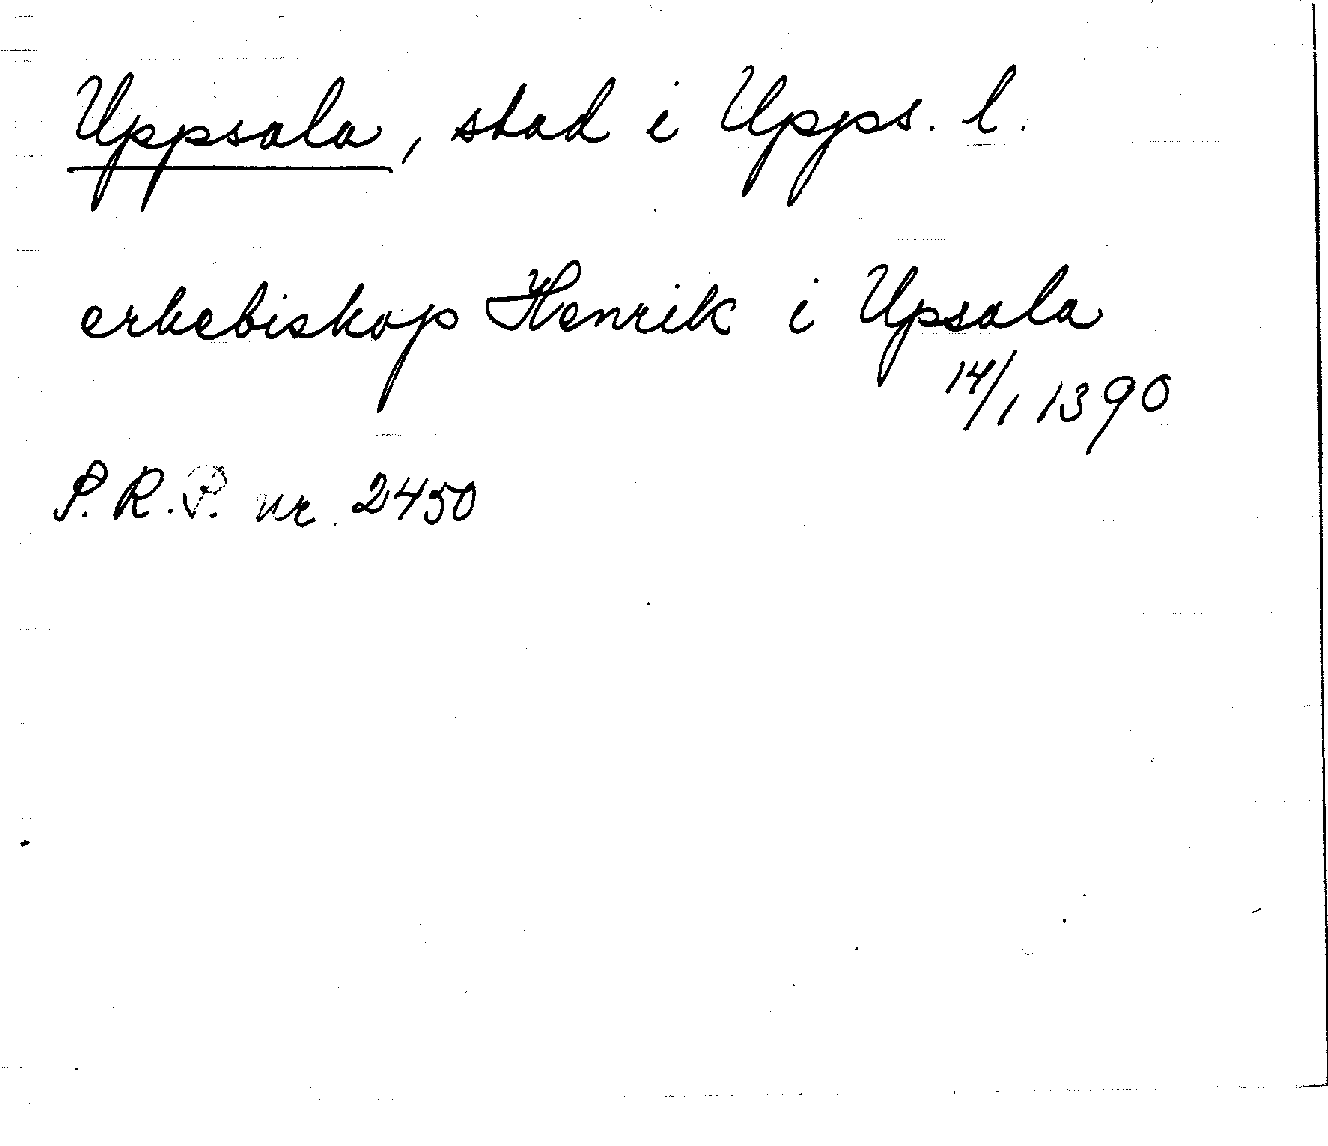 Uppsala, stad i Upps. l.
erkebiskop Henrik i Upsala
14/1 1390
P.R.P. nr. 2450